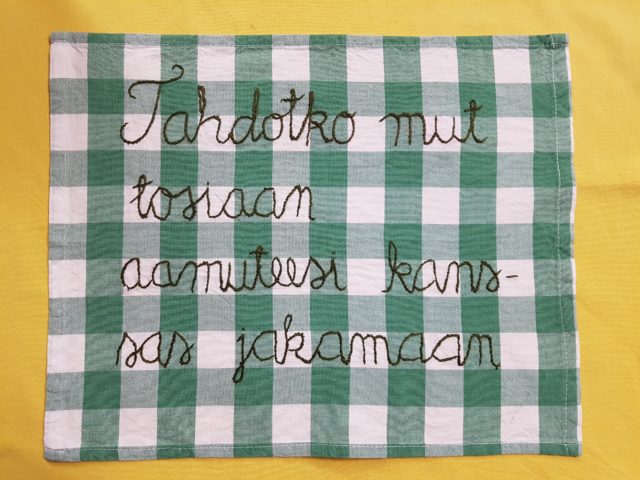 Tahdotko mut
tosiaan
aamuteesi kans-
sas jakamaan